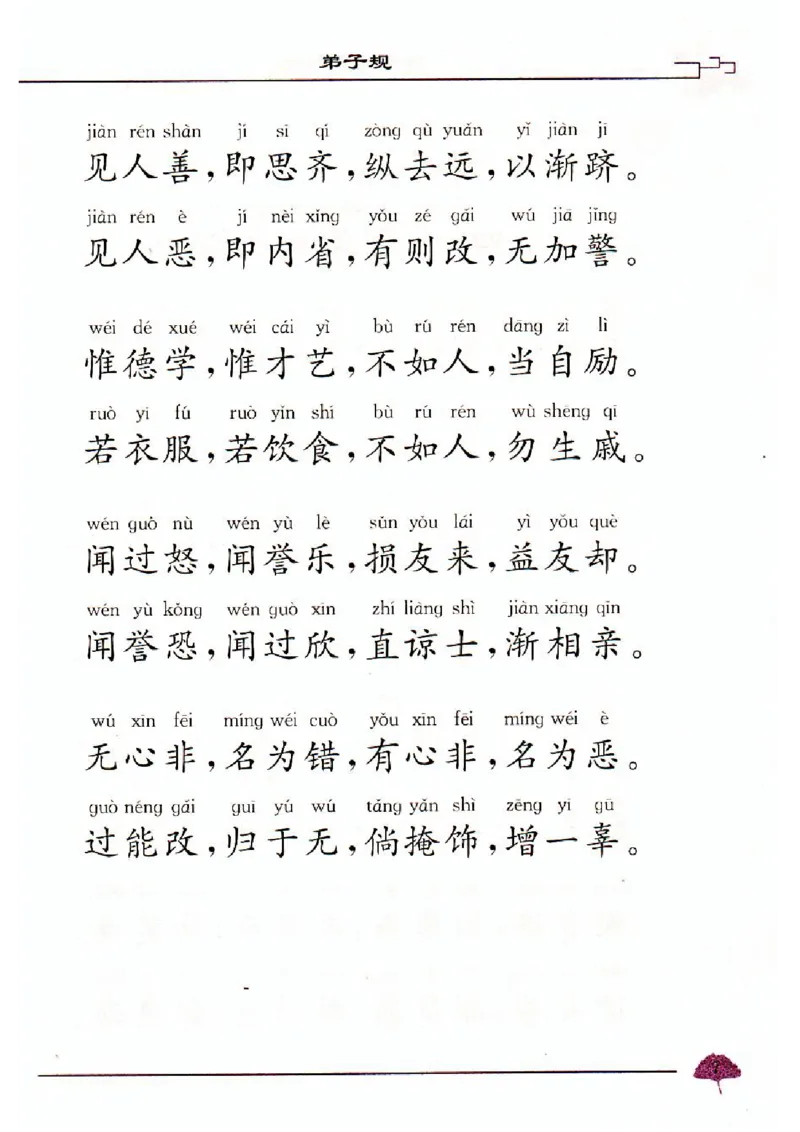 弟子规
jiàn rén shàn jí sī qí zòng qù yuǎn yǐ jiàn jī
见人善，即思齐，纵去远，以渐跻。
jiàn rén è jí nèi xǐng yǒu zé gǎi wú jiā jǐng
见人恶，即内省，有则改，无加警。
wéi dé xué wéi cái yì bù rú rén dāng zì lì
惟德学，惟才艺，不如人，当自励。
ruò yī fú ruò yǐn shí bù rú rén wù shēng qī
若衣服，若饮食，不如人，勿生戚。
wén guò nù wén yù lè sǔn yǒu lái yì yǒu què
闻过怒，闻誉乐，损友来，益友却。
wén yù kǒng wén guò xīn zhí liàng shì jiàn xiāng qīn
闻誉恐，闻过欣，直谅士，渐相亲。
wú xīn fēi míng wéi cuò yǒu xīn fēi míng wéi è
无心非，名为错，有心非，名为恶。
guò néng gǎi guī yú wú tǎng yǎn shì zēng yī gū
过能改，归于无，倘掩饰，增一辜。